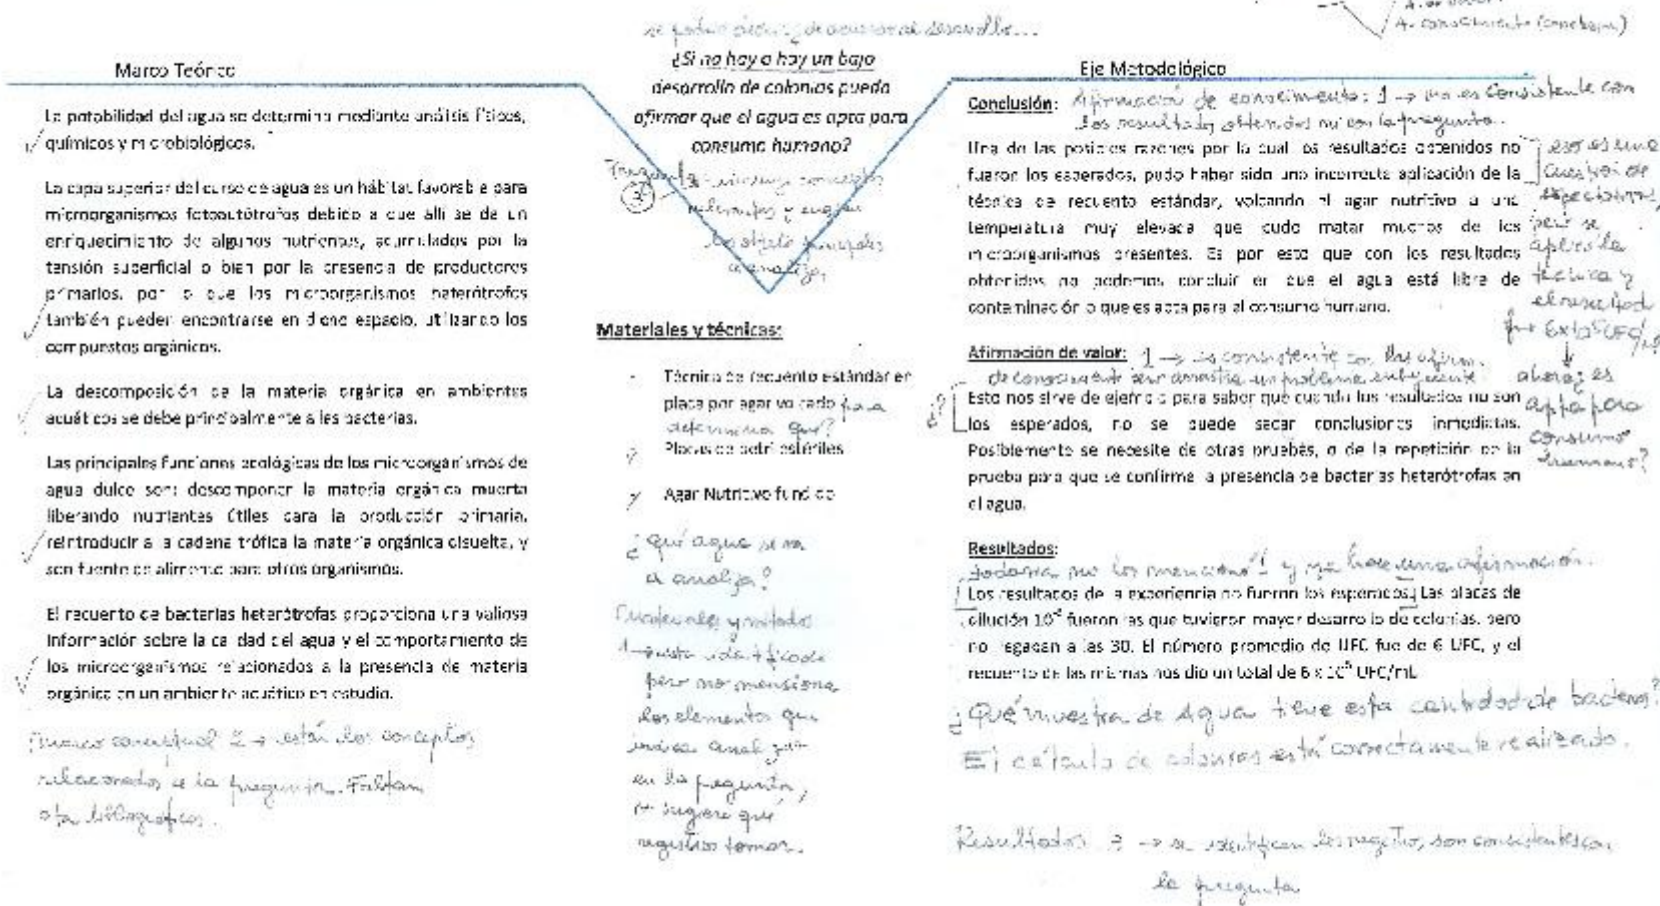 A. conocimiento (conclusión)
se podría decir, de acuerdo al desarrollo...
¿Si no hay o hay un bajo
desarrollo de colonias puedo
afirmar que el agua es apta para
consumo humano?
Pregunta
3
incluye conceptos
relevantes y
los objetos principales
a analizar
Marco Teórico
La potabilidad del agua se determina mediante análisis físicos,
químicos y microbiológicos.
La capa superior del curso de agua es un hábitat favorable para
microorganismos fotoautótrofos debido a que allí se da un
enriquecimiento de algunos nutrientes, acumulados por la
tensión superficial o bien por la presencia de productores
primarios, por lo que los microorganismos heterótrofos
también pueden encontrarse en dicho espacio, utilizando los
compuestos orgánicos.
La descomposición de la materia orgánica en ambientes
acuáticos se debe principalmente a las bacterias.
Las principales funciones ecológicas de los microorganismos de
agua dulce son: descomponer la materia orgánica muerta
liberando nutrientes útiles para la producción primaria,
reintroducir a la cadena trófica la materia orgánica disuelta, y
son fuente de alimento para otros organismos.
El recuento de bacterias heterótrofas proporciona una valiosa
información sobre la calidad del agua y el comportamiento de
los microorganismos relacionados a la presencia de materia
orgánica en un ambiente acuático en estudio.
marco conceptual 2 → están los conceptos
relacionados a la pregunta. Faltan
citas bibliográficas.
Materiales y técnicas:
- Técnica de recuento estándar en
placa por agar volcado para
determinar qué?
Placas de petri estériles
Agar Nutritivo fundido
¿qué agua se va
a analizar?
Materiales y métodos
1 → está identificado
pero no menciona
los elementos que
indica analizar
en la pregunta,
ni sugiere qué
registros tomar.
Eje Metodológico
Conclusión: Afirmación de conocimiento: 1 → no es consistente con
los resultados obtenidos ni con la pregunta.
Una de las posibles razones por la cual los resultados obtenidos no
fueron los esperados, pudo haber sido una incorrecta aplicación de la
técnica de recuento estándar, volcando el agar nutritivo a una
temperatura muy elevada que pudo matar muchos de los
microorganismos presentes. Es por esto que con los resultados
obtenidos no podemos concluir en que el agua está libre de
contaminación o que es apta para el consumo humano.
eso es una
cuestión de
expectativas,
pero se
aplicó la
técnica y
el resultado
fue
ahora, ¿es
apta para
consumo
humano?
Afirmación de valor: 1 → es consistente con las afirm.
de conocimiento pero arrastra un problema
¿?
Esto nos sirve de ejemplo para saber que cuando los resultados no son
los esperados, no se puede sacar conclusiones inmediatas.
Posiblemente se necesite de otras pruebas, o de la repetición de la
prueba para que se confirme la presencia de bacterias heterótrofas en
el agua.
Resultados:
todavía no los menciono! y ya hace una afirmación.
Los resultados de la experiencia no fueron los esperados. Las placas de
dilución 10⁻² fueron las que tuvieron mayor desarrollo de colonias, pero
no llegaban a las 30. El número promedio de UFC fue de 6 UFC, y el
recuento de las mismas nos dio un total de 6 x 10⁵ UFC/mL
¿Qué muestra de Agua tiene esta cantidad de bacterias?
El cálculo de colonias está correctamente realizado.
Resultados 3 → se identifican los registros, son consistentes con
la pregunta